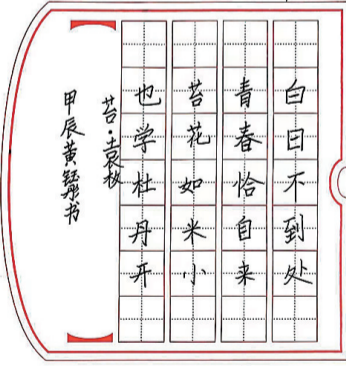 白日不到处
青春恰自来
苔花如米小
也学杜丹开
苔·袁枚
甲辰黄钰彤书